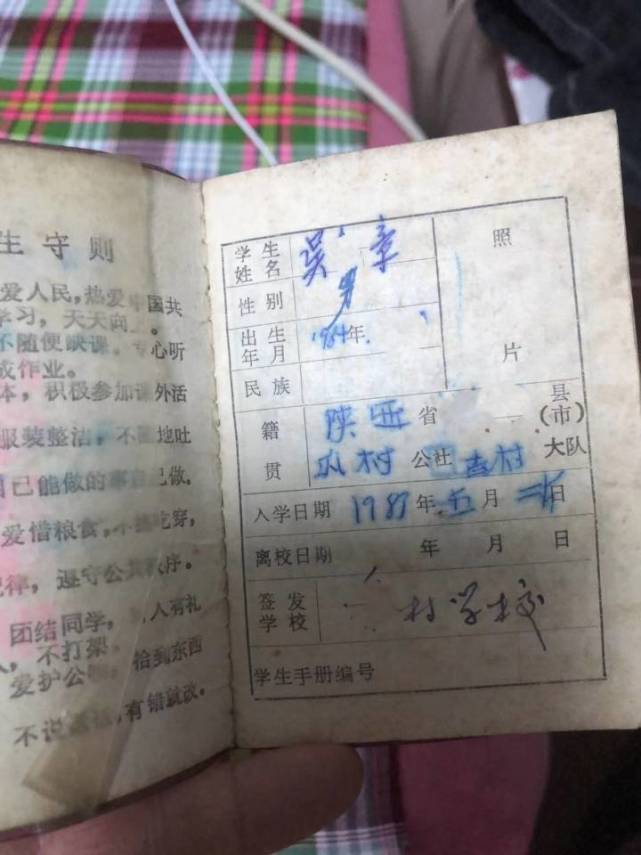 生守则
爱人民,热爱中国共
学习,天天向上。
不随便缺课。专心听
成作业。
本,积极参加课外活
服装整洁,不随地吐
自己能做的事自己做。
爱惜粮食,不挑吃穿,
纪律,遵守公共秩序。
团结同学,人有礼
,不打架。
爱护公物,拾到东西
不说谎话,有错就改。
学生姓名 吴 章
性别 男
出生年月 1984年
民族
照片
籍贯 陕西省 县(市)
村公社 村大队
入学日期 19 年 五月 日
离校日期 年 月 日
签发学校 村学校
学生手册编号